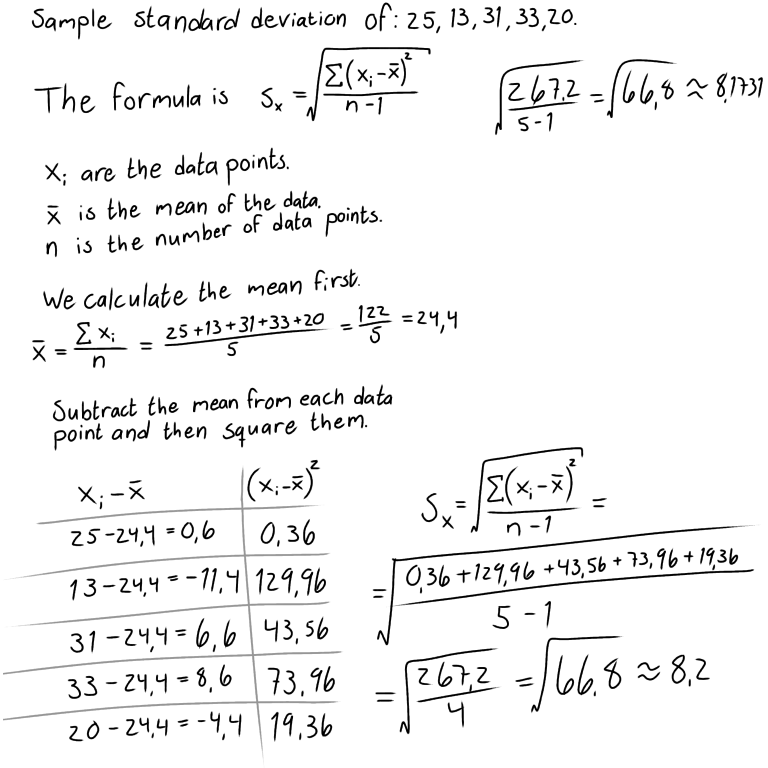 Sample standard deviation of: 25, 13, 31, 33, 20.
The formula is Sₓ = √(Σ(xᵢ-x̄)²/(n-1))
√(267,2/(5-1)) = √66,8 ≈ 8,1731
xᵢ are the data points.
x̄ is the mean of the data.
n is the number of data points.
We calculate the mean first.
x̄ = Σxᵢ/n = (25+13+31+33+20)/5 = 122/5 = 24,4
Subtract the mean from each data
point and then square them.
xᵢ-x̄ (xᵢ-x̄)²
25-24,4=0,6 0,36
13-24,4=-11,4 129,96
31-24,4=6,6 43,56
33-24,4=8,6 73,96
20-24,4=-4,4 19,36
Sₓ = √(Σ(xᵢ-x̄)²/(n-1)) =
= √((0,36+129,96+43,56+73,96+19,36)/(5-1))
= √(267,2/4) = √66,8 ≈ 8,2